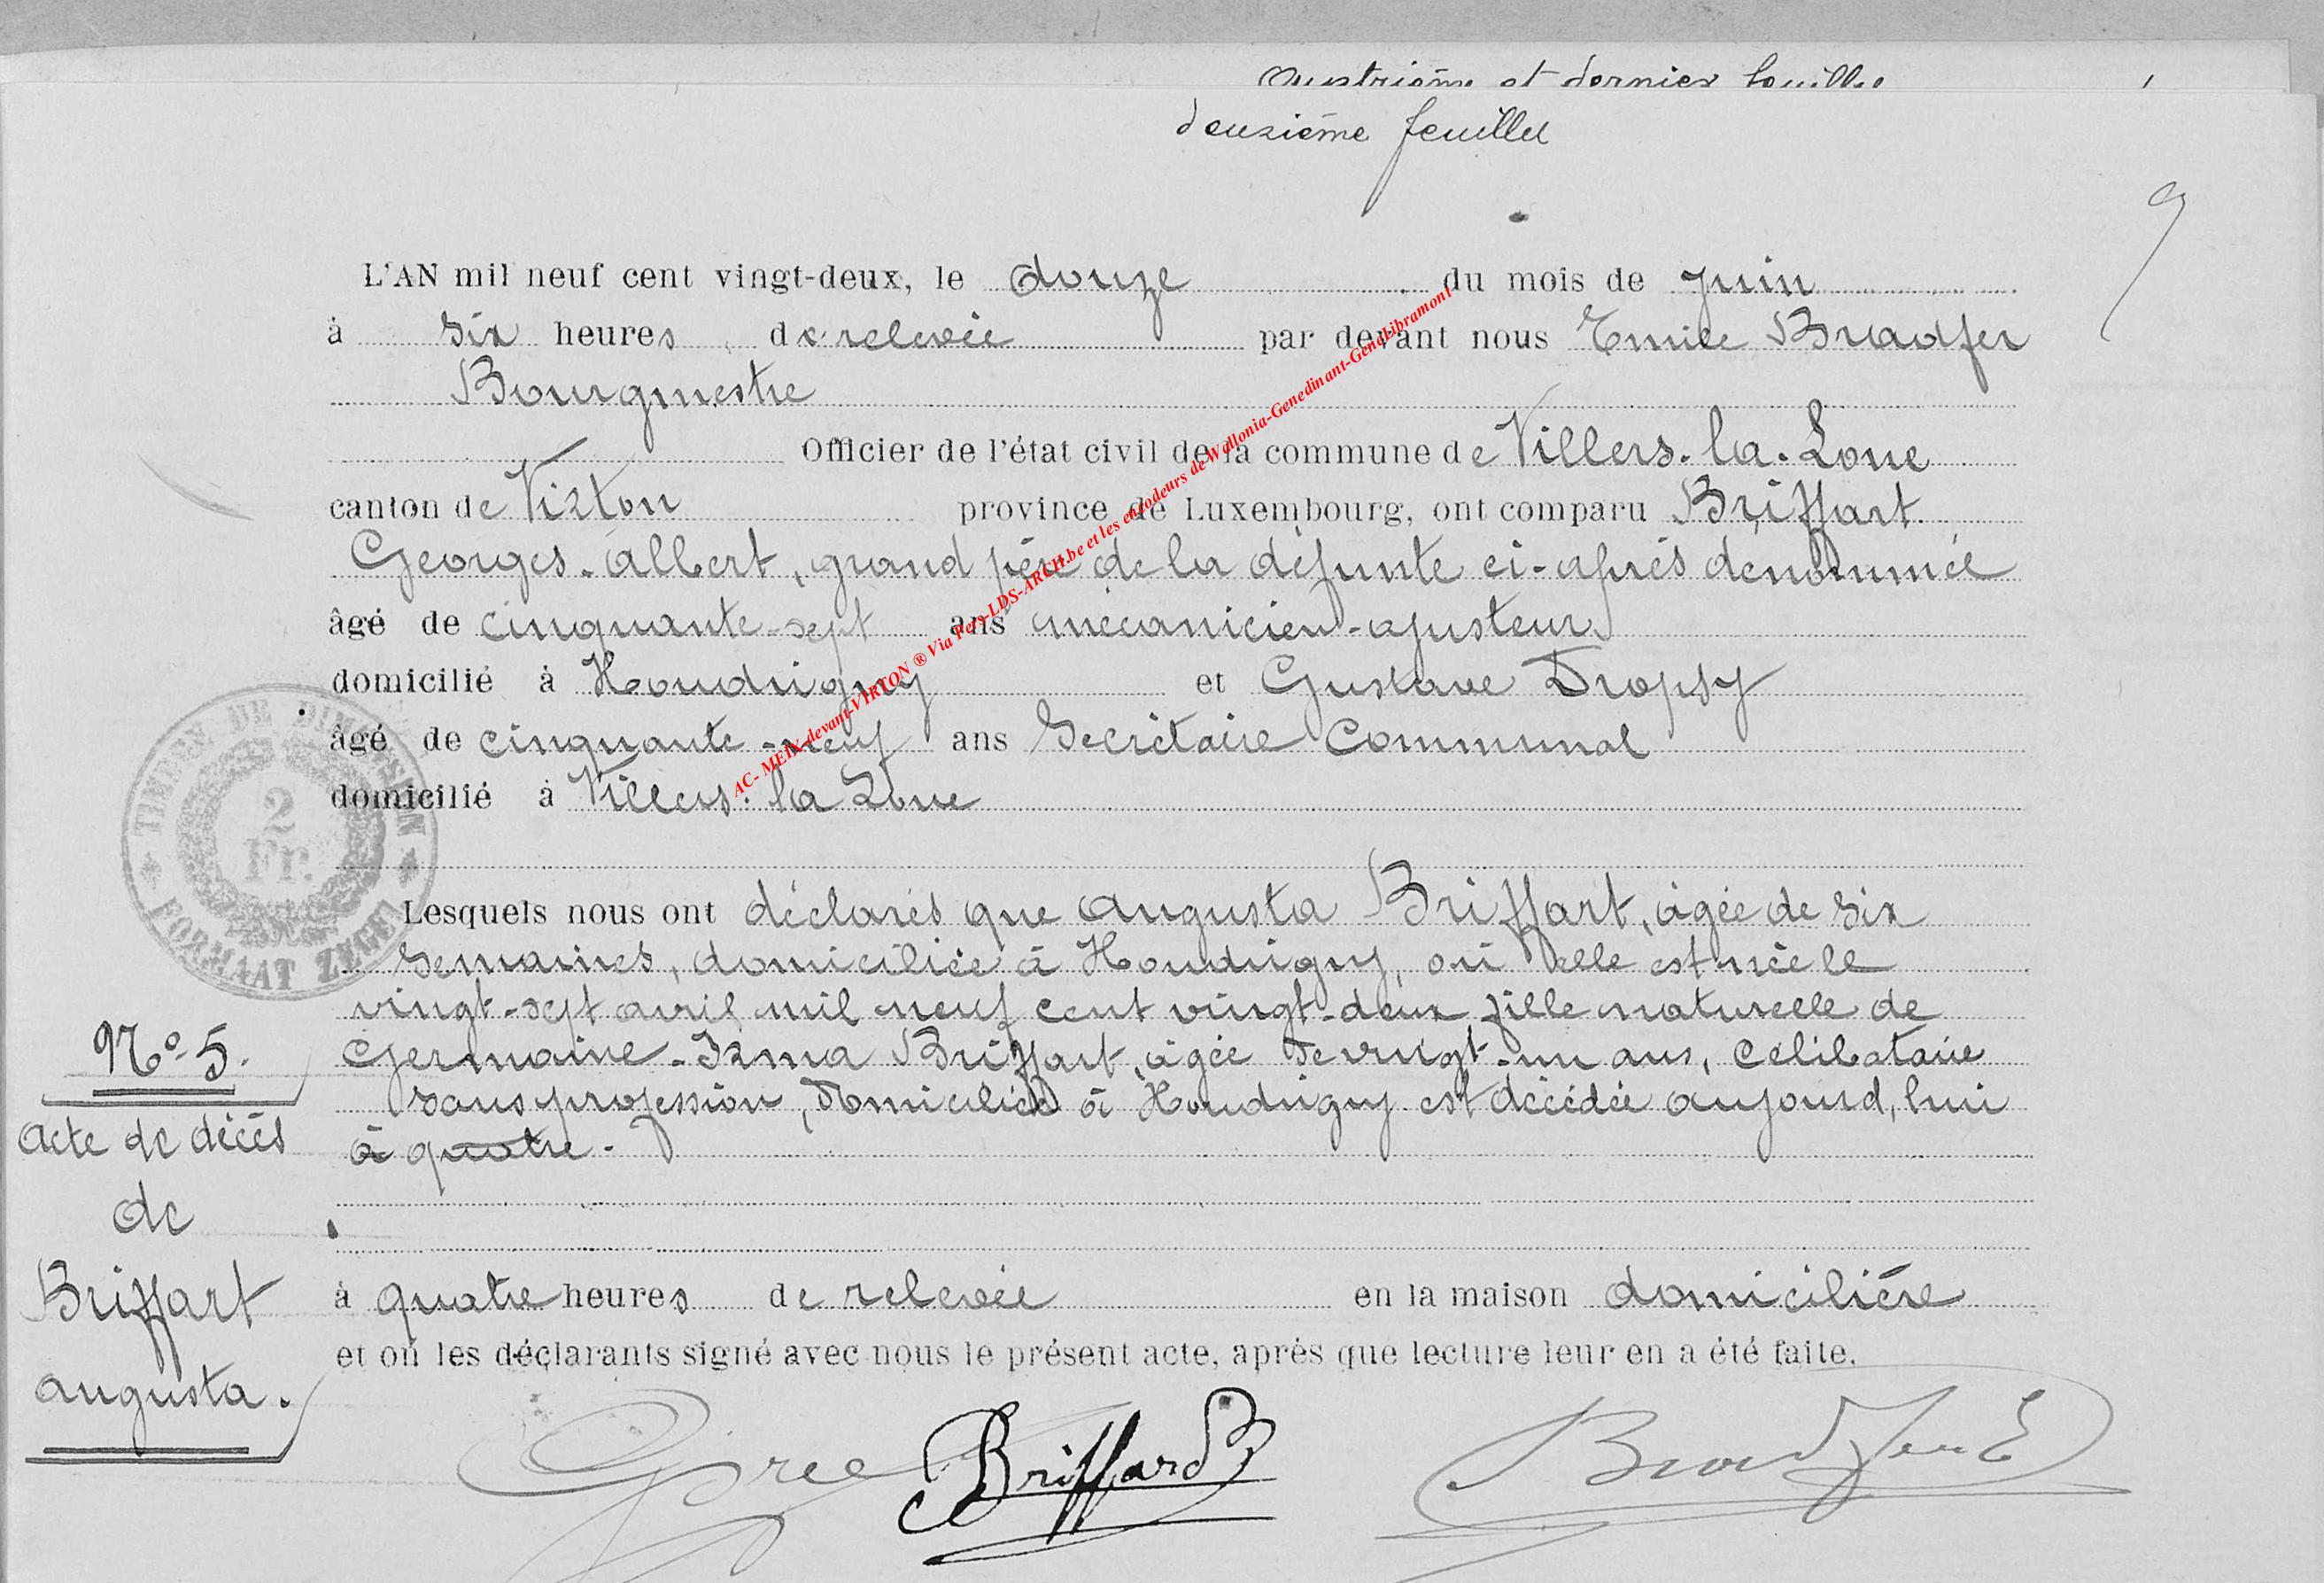 deuxième feuillet
9
L'AN mil neuf cent vingt-deux, le douze du mois de Juin
à six heures de relevée par devant nous Emile Bradfer
Bourgmestre
Officier de l'état civil de la commune de Villers-la-Loue
canton de Virton province de Luxembourg, ont comparu Briffart
Georges-Albert, grand père de la défunte ci-après dénommée
âgé de cinquante-sept ans mécanicien-ajusteur
domicilié à Houdrigny et Gustave Dropsy
âgé de cinquante-neuf ans Secrétaire Communal
domicilié à Villers-la Loue
TIMBRE DE DIMENSION
2
Fr.
FORMAAT ZEGEL
Lesquels nous ont déclarés que Augusta Briffart, âgée de six
semaines, domiciliée à Houdrigny, où elle est née le
vingt-sept avril mil neuf cent vingt-deux fille naturelle de
Germaine-Irma Briffart, âgée de vingt-un ans, célibataire
sans profession, domiciliée à Houdrigny est décédée aujourd'hui
à quatre -
No 5.
Acte de décès
de
Briffart
Augusta.
à quatre heures de relevée en la maison domicilière
et on les déclarants signé avec nous le présent acte, après que lecture leur en a été faite.
Briffard
Bradfer E
AC- MEIX-devant-VIRTON ® Via Fers-LDS-ARCH.be et les encodeurs de Wallonia-Genedinant-GeneLibramont